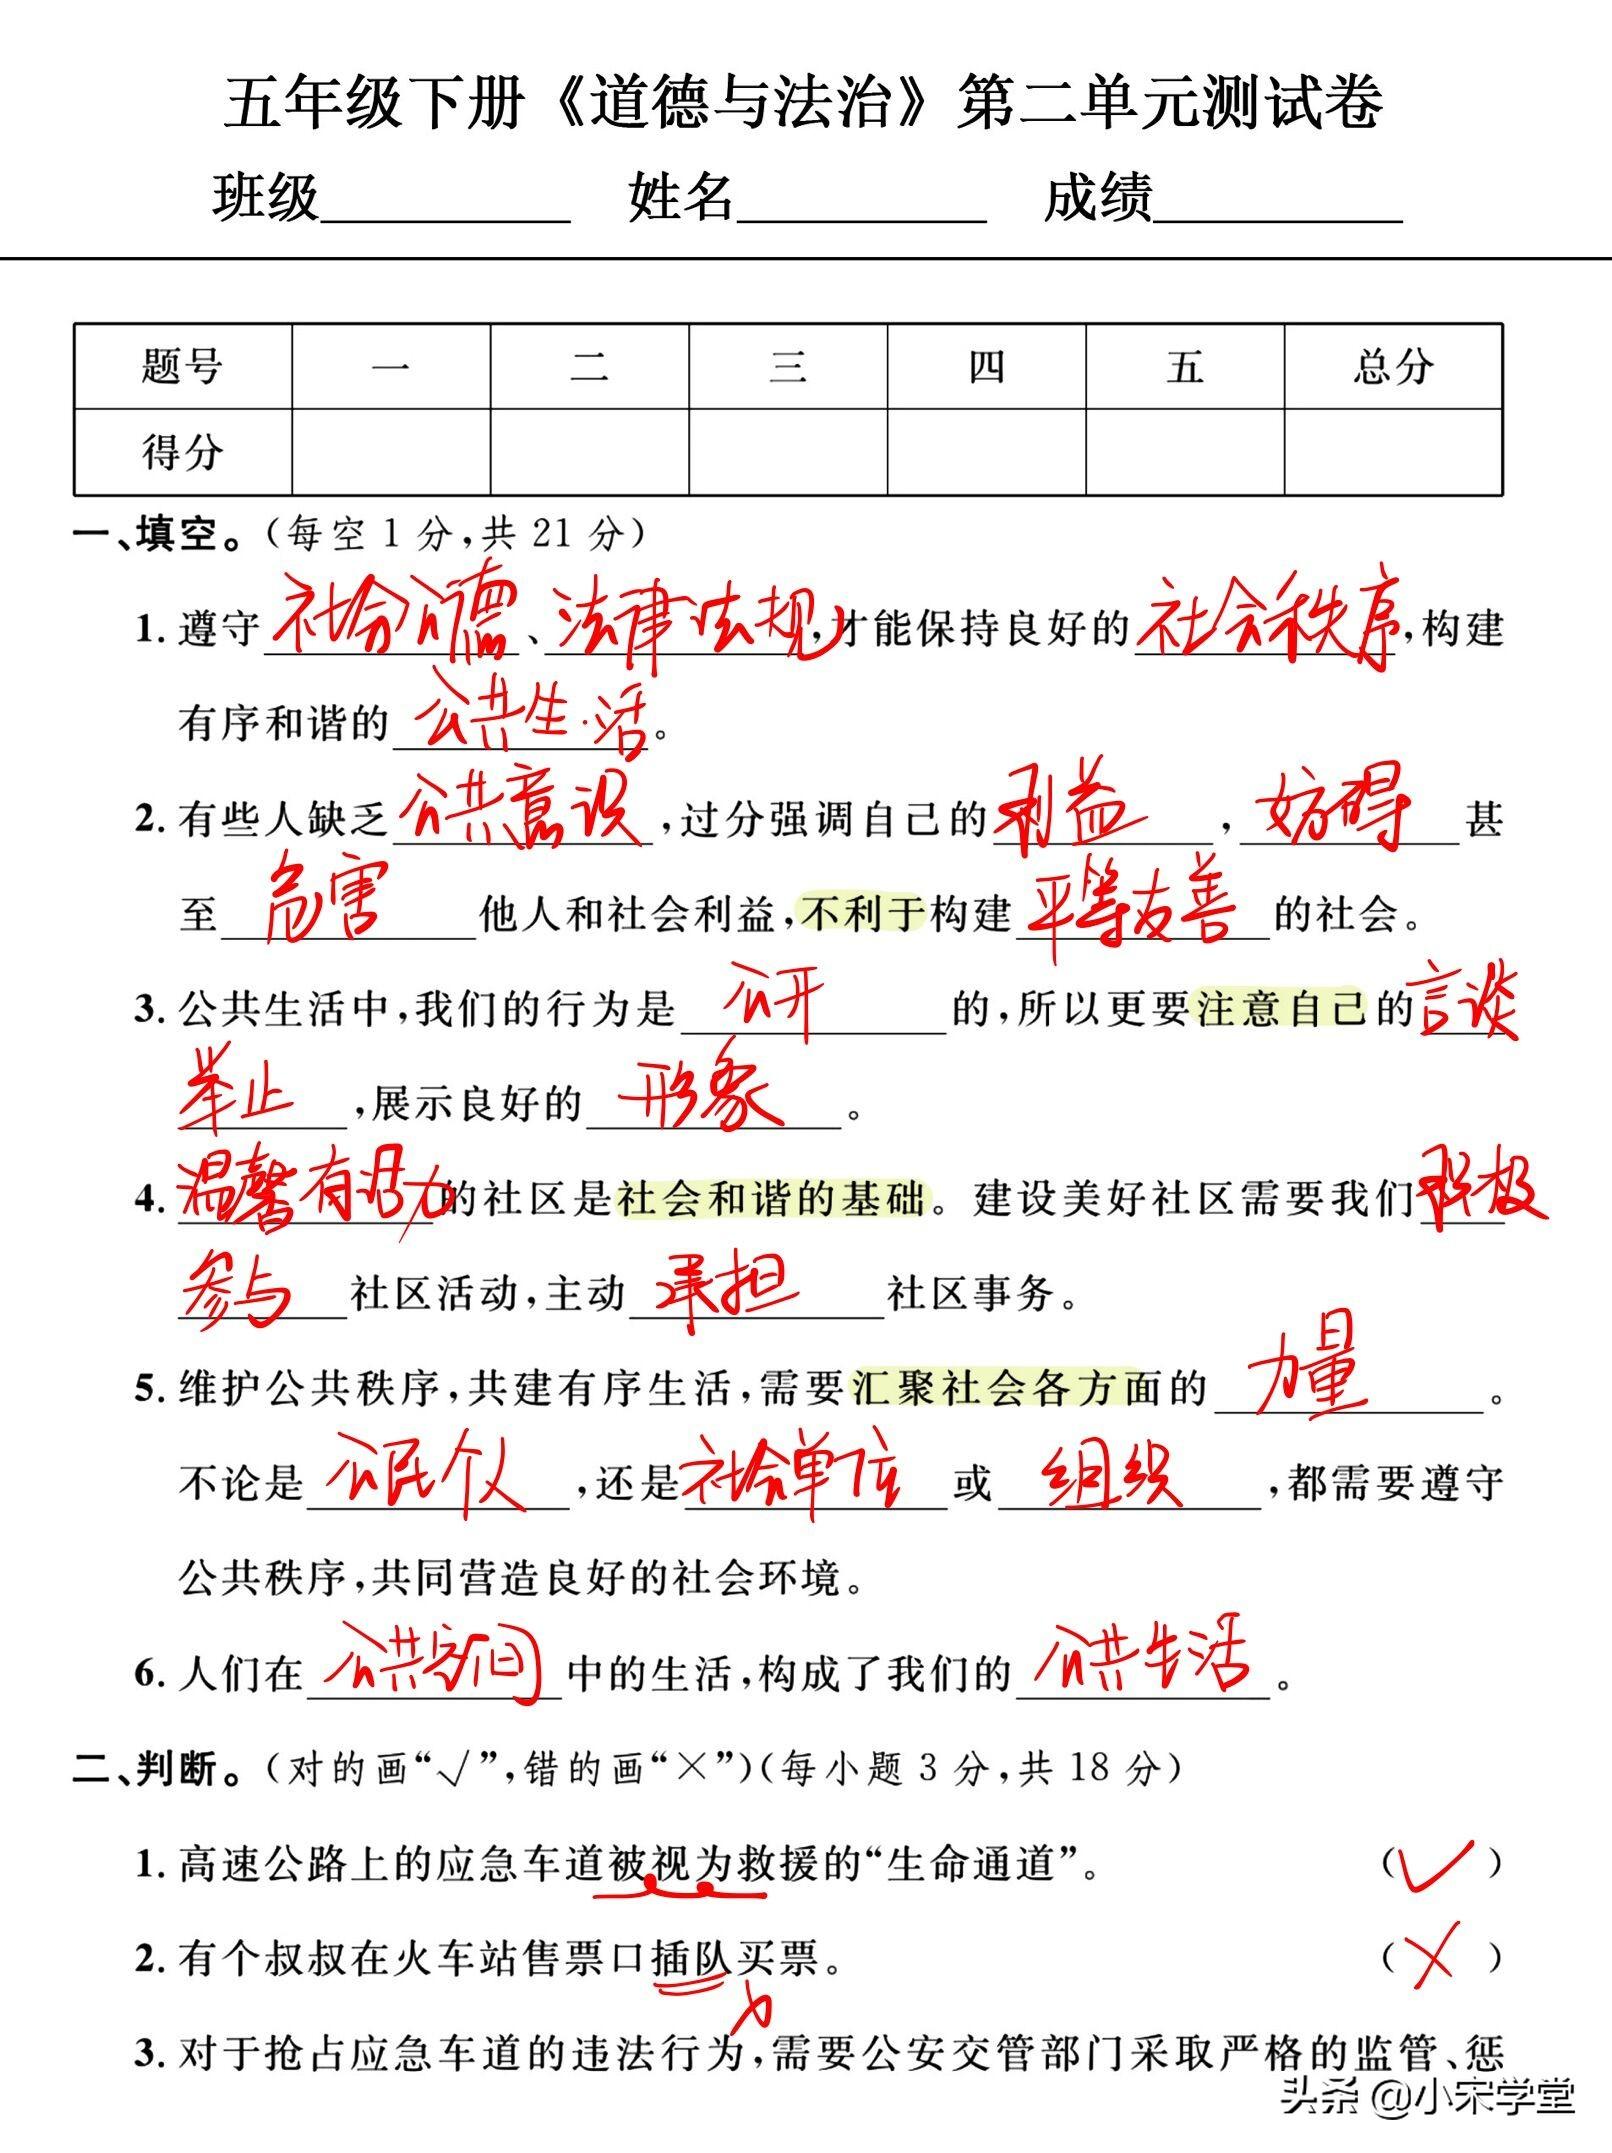 五年级下册《道德与法治》第二单元测试卷
班级 姓名 成绩
题号 一 二 三 四 五 总分
得分
一、填空。(每空1分,共21分)
1. 遵守社会公德、法律法规,才能保持良好的社会秩序,构建
有序和谐的公共生活。
2. 有些人缺乏公共意识,过分强调自己的利益,妨碍甚
至危害他人和社会利益,不利于构建平等友善的社会。
3. 公共生活中,我们的行为是公开的,所以更要注意自己的言谈
举止,展示良好的形象。
4. 温馨有活力的社区是社会和谐的基础。建设美好社区需要我们积极
参与社区活动,主动承担社区事务。
5. 维护公共秩序,共建有序生活,需要汇聚社会各方面的力量。
不论是公民个人,还是社会单位或组织,都需要遵守
公共秩序,共同营造良好的社会环境。
6. 人们在公共空间中的生活,构成了我们的公共生活。
二、判断。(对的画“√”,错的画“×”)(每小题3分,共18分)
1. 高速公路上的应急车道被视为救援的“生命通道”。 (√)
2. 有个叔叔在火车站售票口插队买票。 (×)
3. 对于抢占应急车道的违法行为,需要公安交管部门采取严格的监管、惩
头条 @小宋学堂